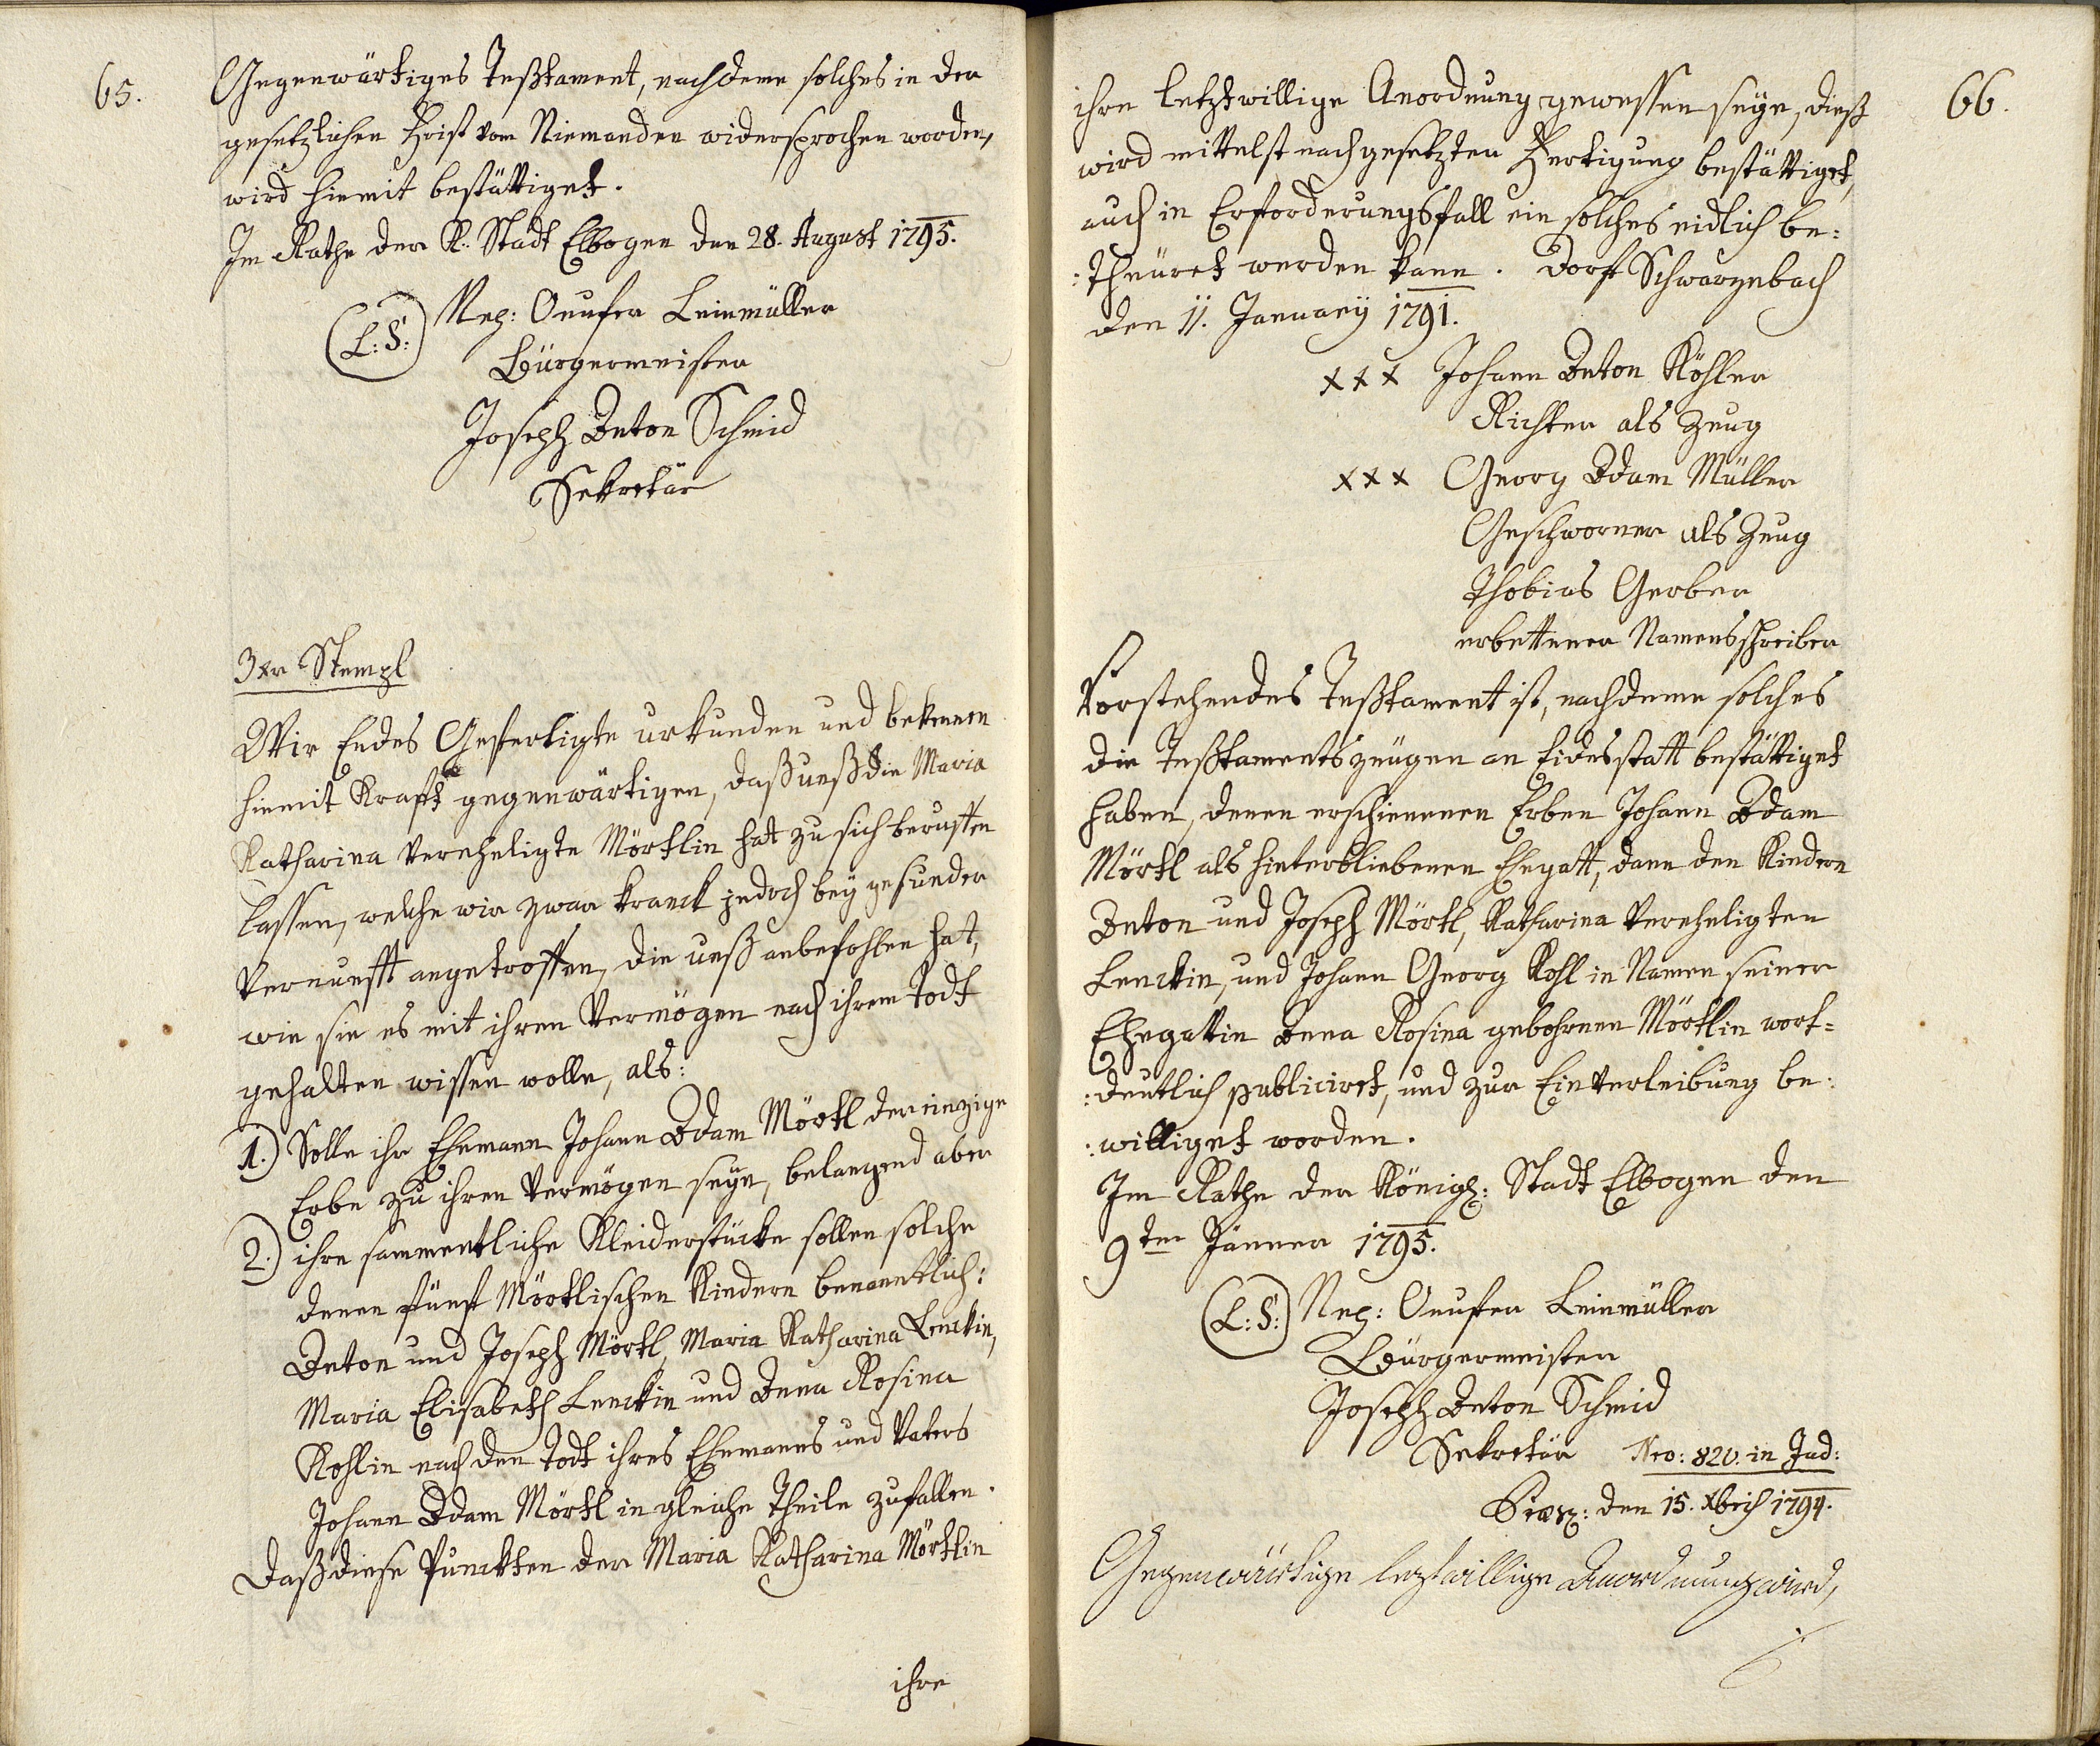 65.
Gegenwärtiges Testtament, nachdeme solches in der
gesetzlichen Frist vom Niemanden widersprochen worden,
wird hiemit bestättiget.
Im Rathe der K: Stadt Elbogen den 28. August 1795.
(L:S:) Nep: Onufer Leinmüller
Bürgermeister
Joseph Anton Schmid
Sekretär
3xr Stempl
Wir Endes Gefertigte urkunden und bekennen
hiemit Krafft gegenwärtigen, daß unß die Maria
Katharina Vereheligte Mörtlin hat zu sich beruffen
lassen, welche wir zwar kranck jedoch bey gesunder
Vernunfft angetroffen, die unß anbefohlen hat,
wie sie es mit ihren Vermögen nach ihrem Todt
gehalten wissen wolle, als:
1.) Solle ihr Ehemann Johann Adam Mörtl der einzige
Erbe zu ihren Vermögen seye, belangend aber
2.) ihre sammentliche Kleiderstücke sollen solche
denen fünf Mörtlischen Kindern benanntlich:
Anton und Joseph Mörtl, Maria Katharina Lenckin,
Maria Elisabeth Lenckin und Anna Rosina
Kohlin nach den Todt ihres Ehemanns und Vaters
Johann Adam Mörtl in gleiche Theile zufallen.
Daß diese Punckten der Maria Katharina Mörtlin
ihre
66.
ihre letztwillige Anordnung gewessen seye, dieß
wird mittelst nachgesetzter Fertigung bestättiget,
auch in Erforderungsfall ein solches eidlich be:
:theüret werden kann. Dorf Schwarzenbach
den 11. Januarÿ 1791.
xxx Johann Anton Köhler
Richter als Zeug
xxx Georg Adam Müller
Geschworner als Zeug
Thobias Gerber
erbettener Namensschreiber
Vorstehendes Testtament ist, nachdeme solches
die Testtamentszeugen an Eidesstatt bestättiget
haben, denen erschienenen Erben Johann Adam
Mörtl als hinterbliebenen Ehegatt, dann den Kindern
Anton und Joseph Mörtl, Katharina Vereheligten
Lenckin, und Johann Georg Kohl in Namen seiner
Ehegattin Anna Rosina gebohrnen Mörtlin wort=
:deutlich publiciret, und zur Einverleibung be:
:williget worden.
Im Rathe der Königl: Stadt Elbogen den
9ten Jänner 1795.
(L:S:) Nep: Onufer Leinmüller
Bürgermeister
Joseph Anton Schmid
Sekretär Nro: 820. in Jud:
Præs: den 15. Xbris 1794.
Gegenwärtige leztwillige Anordnung wird,